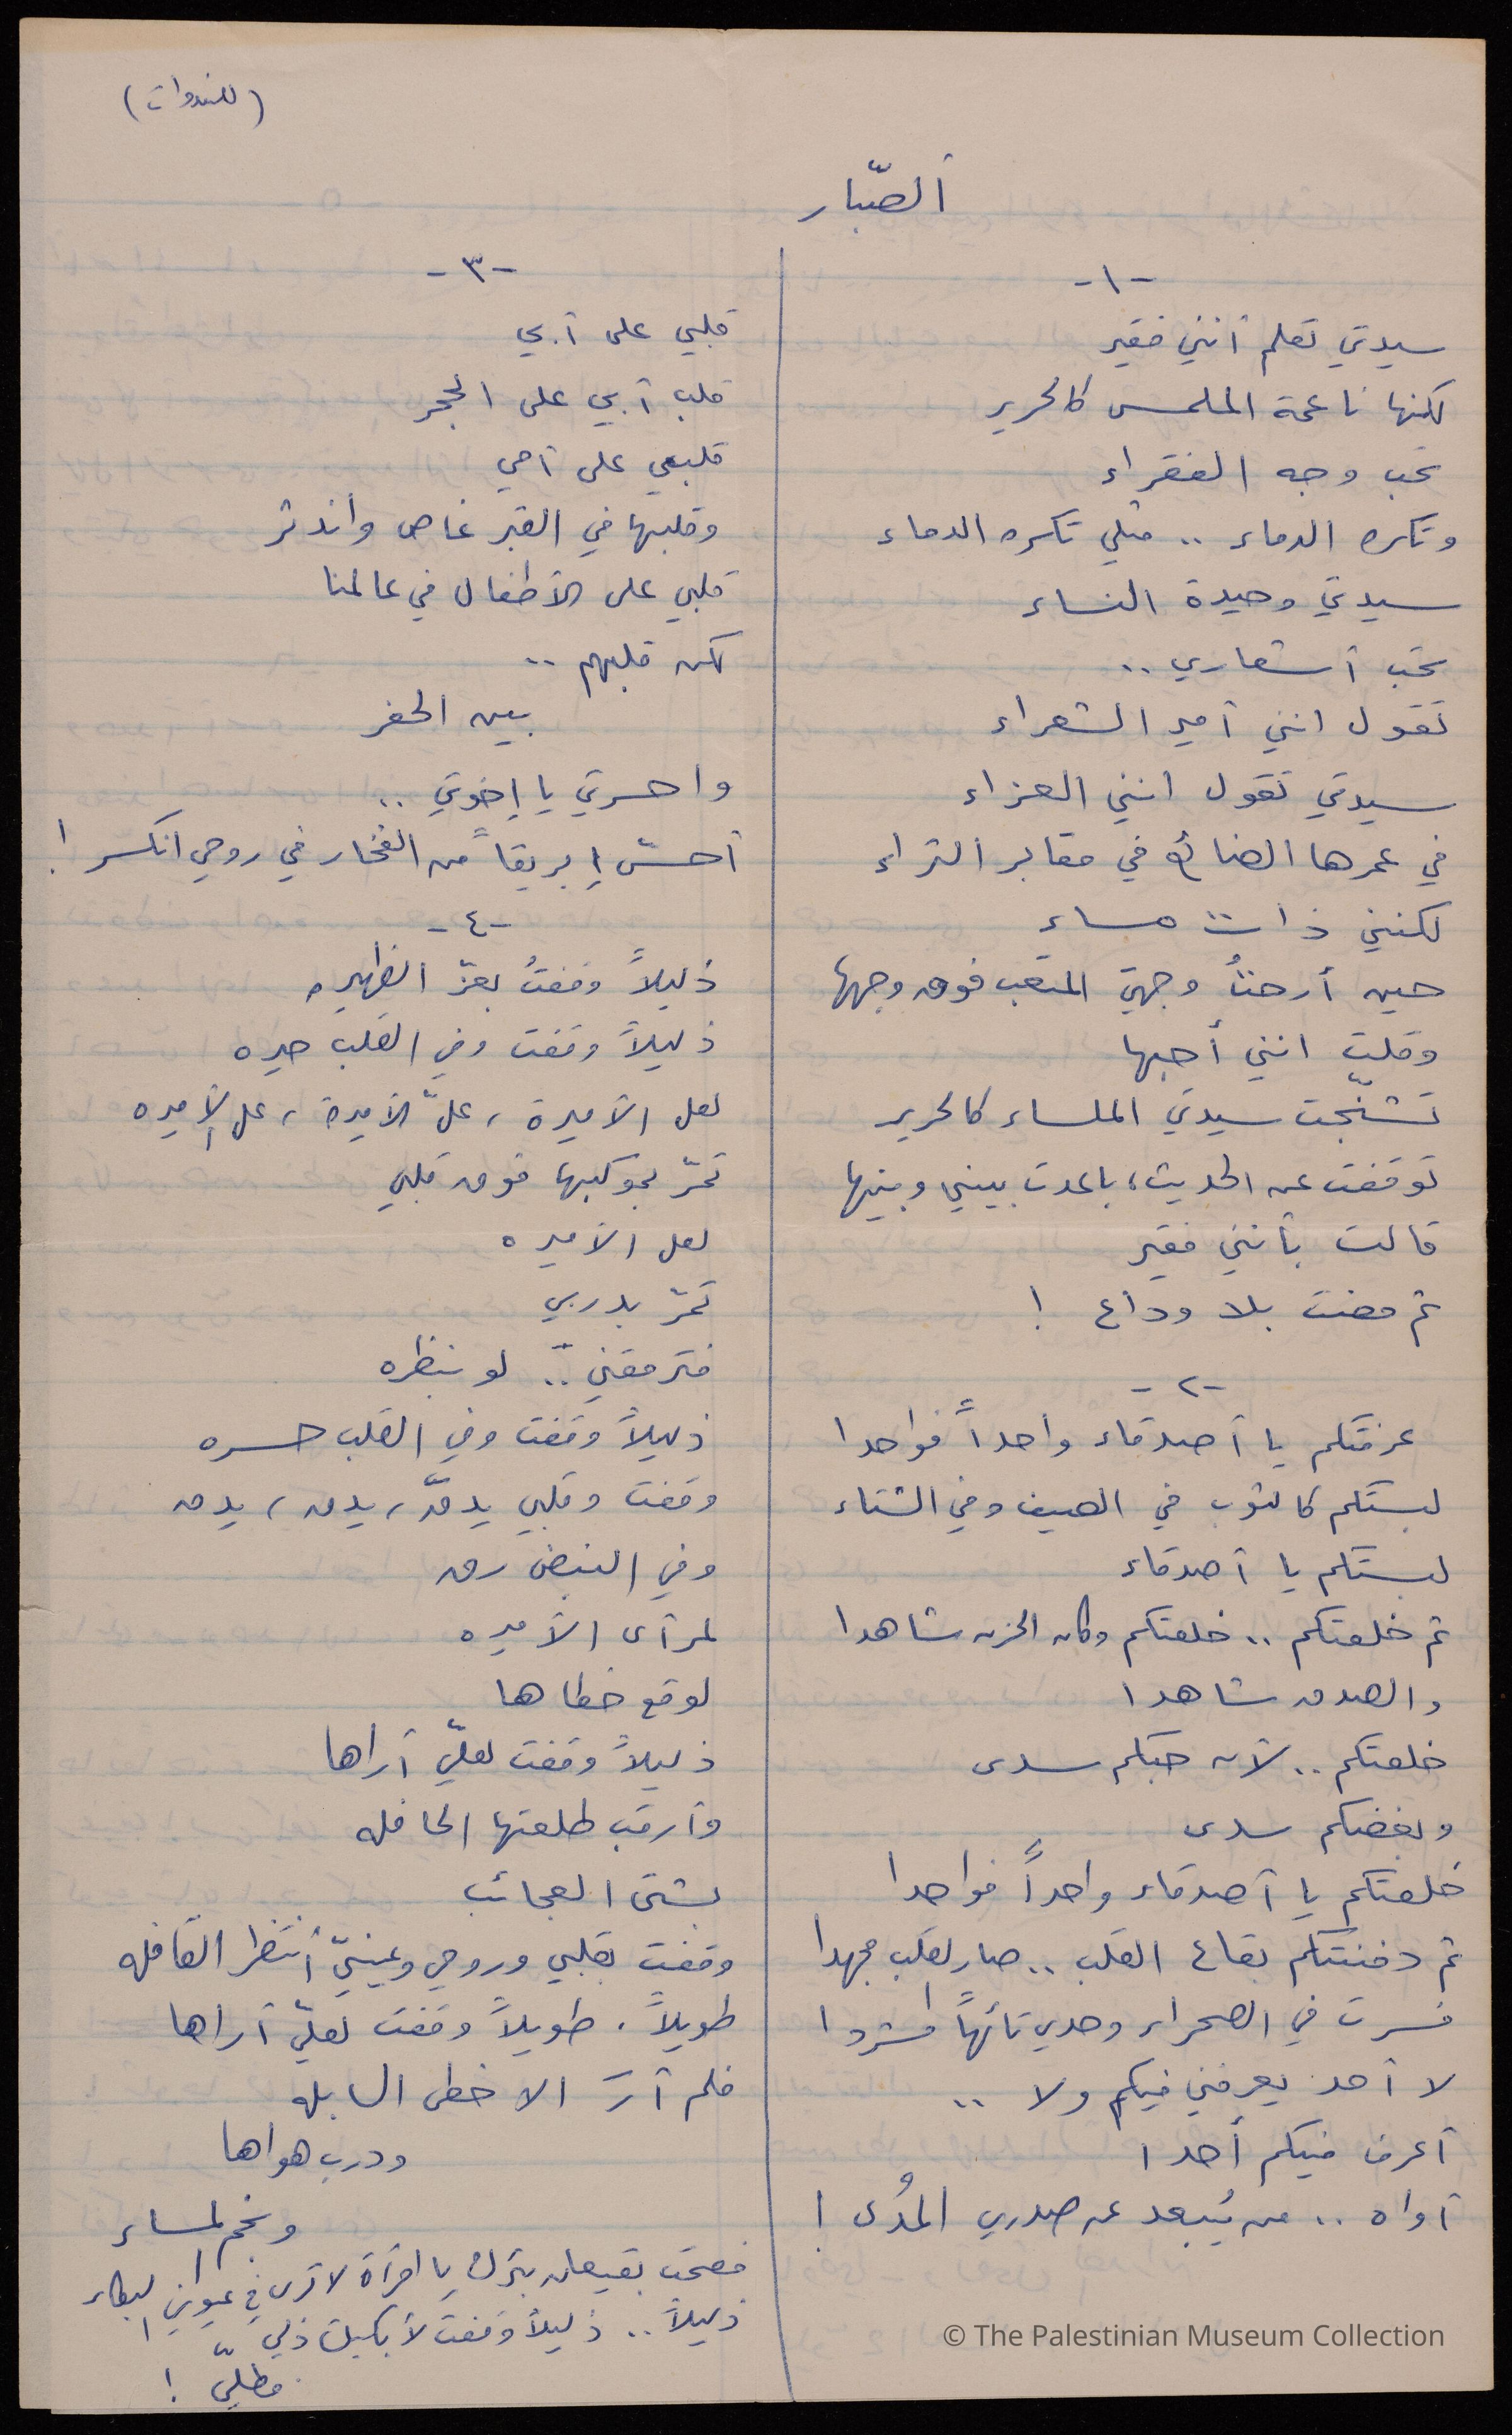 (للندوات)
الصّبار
-١-
سيدتي تعلم أنني فقير
لكنها ناعمة الملمس كالحرير
تحب وجه الفقراء
وتكره الدماء .. مثلي تكره الدماء
سيدتي وحيدة النساء
تحب أشعاري ..
تقول انني أمير الشعراء
سيدتي تقول انني العزاء
في عمرها الضائع في مقابر الثراء
لكنني ذات مساء
حين أرحتُ وجهي المتعب فوق وجهها
وقلت انني أحبها
تشنّجت سيدتي الملساء كالحرير
توقفت عن الحديث، باعدت بيني وبينها
قالت بأنني فقير
ثم مضت بلا وداع !
-٢-
عرفتكم يا أصدقاء واحداً فواحدا
لبستكم كالثوب في الصيف وفي الشتاء
لبستكم يا أصدقاء
ثم خلعتكم .. خلعتكم وكان الحزن شاهدا
والصدق شاهدا
خلعتكم .. لأن حبكم سدى
وبغضكم سدى
خلعتكم يا أصدقاء واحداً فواحدا
ثم دفنتكم بقاع القلب .. صار القلب مجهدا
فسرت في الصحراء وحدي تائهاً مشردا
لا أحد يعرفني فيكم ولا ..
أعرف فيكم أحدا
أواه .. من يُبعد عن صدري المُدى !
-٣-
قلبي على أبي
قلب أبي على الحجر
قلبي على أمي
وقلبها في القبر غاص واندثر
قلبي على الأطفال في عالمنا
لكن قلبهم ..
بين الحفر
واحسرتي يا إخوتي ..
أحسّ إبريقاً من الفخار في روحي انكسر !
-٤-
ذليلاً وقفتُ بعزّ الظهيره
ذليلاً وقفت وفي القلب حيره
لعل الأميرة ، علّ الأميرة ، عل الأميره
تمرّ بموكبها فوق قلبي
لعل الأميره
تمرّ بدربي
فترمقني .. لو بنظره
ذليلاً وقفت وفي القلب حسره
وقفت وقلبي يدقّ ، يدق ، يدق
وفي النبض رق
لمرأى الأميره
لوقع خطاها
ذليلاً وقفت لعلّي أراها
وأرقب طلعتها الحافله
بشتى العجائب
وقفت بقلبي وروحي وعينيّ أنتظر القافله
طويلاً . طويلاً وقفت لعلّي أراها
فلم أرَ الا خطى السابله
ودرب هواها
ونجم المساء
فصحت بقيعان بئرك يا امرأة لا ترى في عيوني البكاء
ذليلاً .. ذليلاً وقفت لأبكيك ذلي
فطلّي !
© The Palestinian Museum Collection